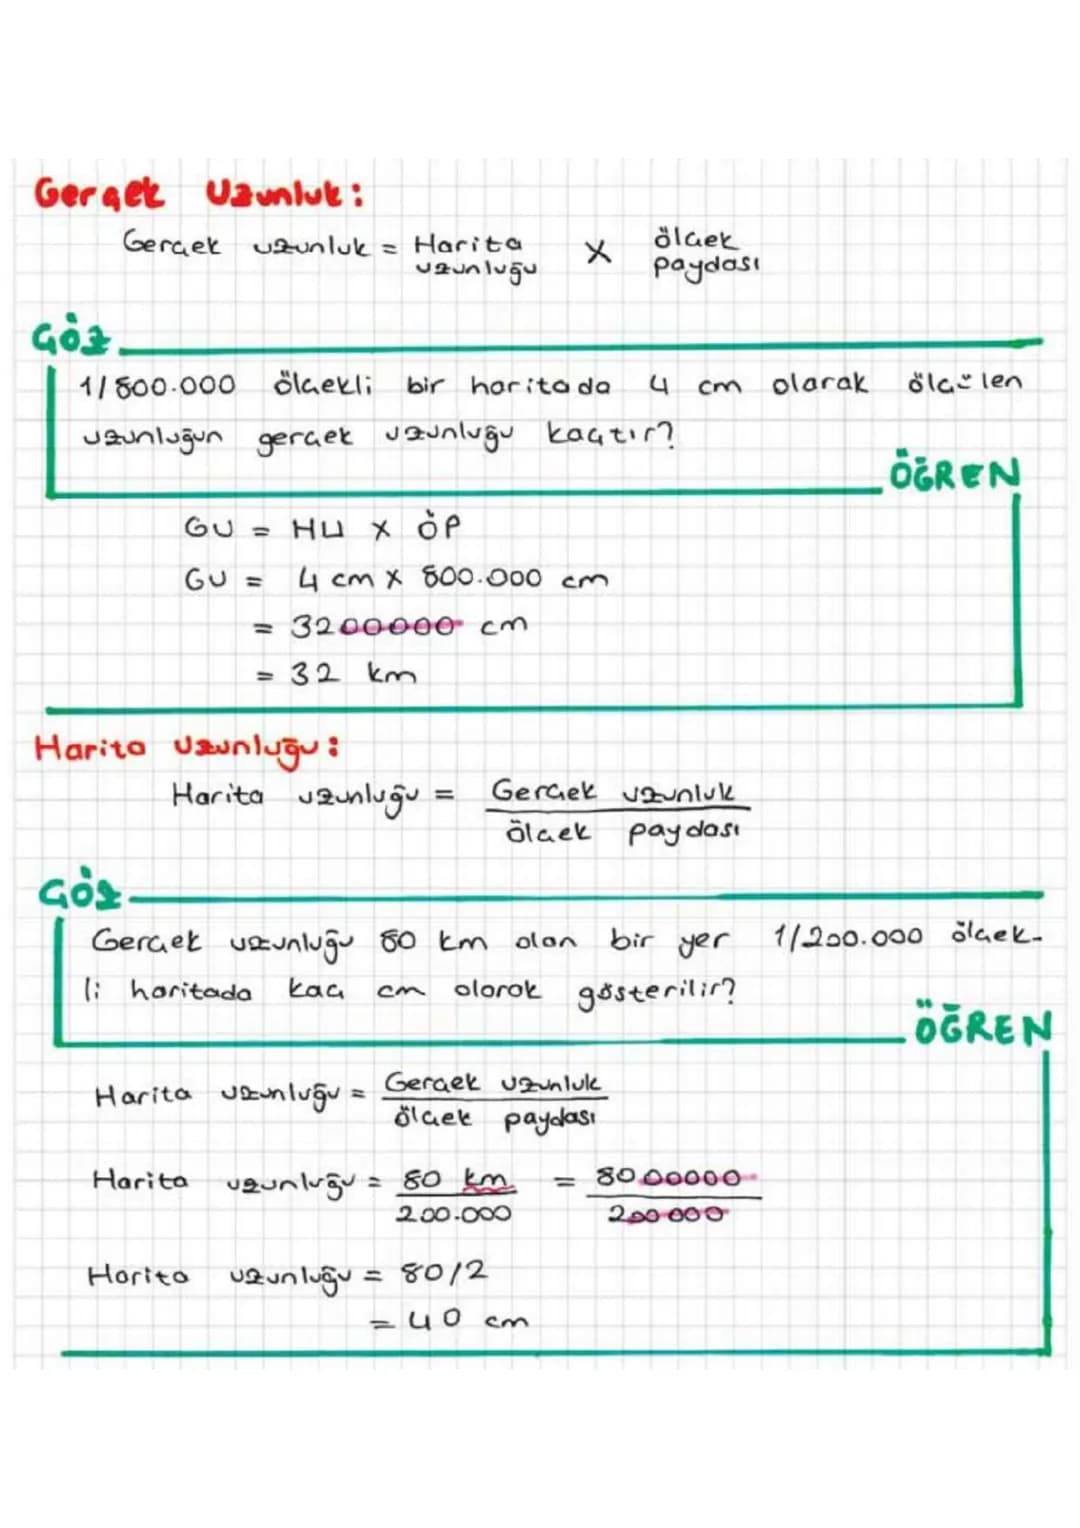 Gerçek Uzunluk:
Gerçek uzunluk = Harita uzunluğu X ölçek paydası
ÇÖZ
1/800.000 ölçekli bir haritada 4 cm olarak ölçülen
uzunluğun gerçek uzunluğu kaçtır?
ÖĞREN
GU = HU X ÖP
GU = 4 cm X 800.000 cm
= 3200000 cm
= 32 km
Harita Uzunluğu:
Harita uzunluğu = Gerçek uzunluk
ölçek paydası
ÇÖZ
Gerçek uzunluğu 80 km olan bir yer 1/200.000 ölçek-
li haritada kaç cm olarak gösterilir?
ÖĞREN
Harita uzunluğu = Gerçek uzunluk
ölçek paydası
Harita uzunluğu = 80 km = 8000000
200.000 200000
Harita uzunluğu = 80/2
= 40 cm